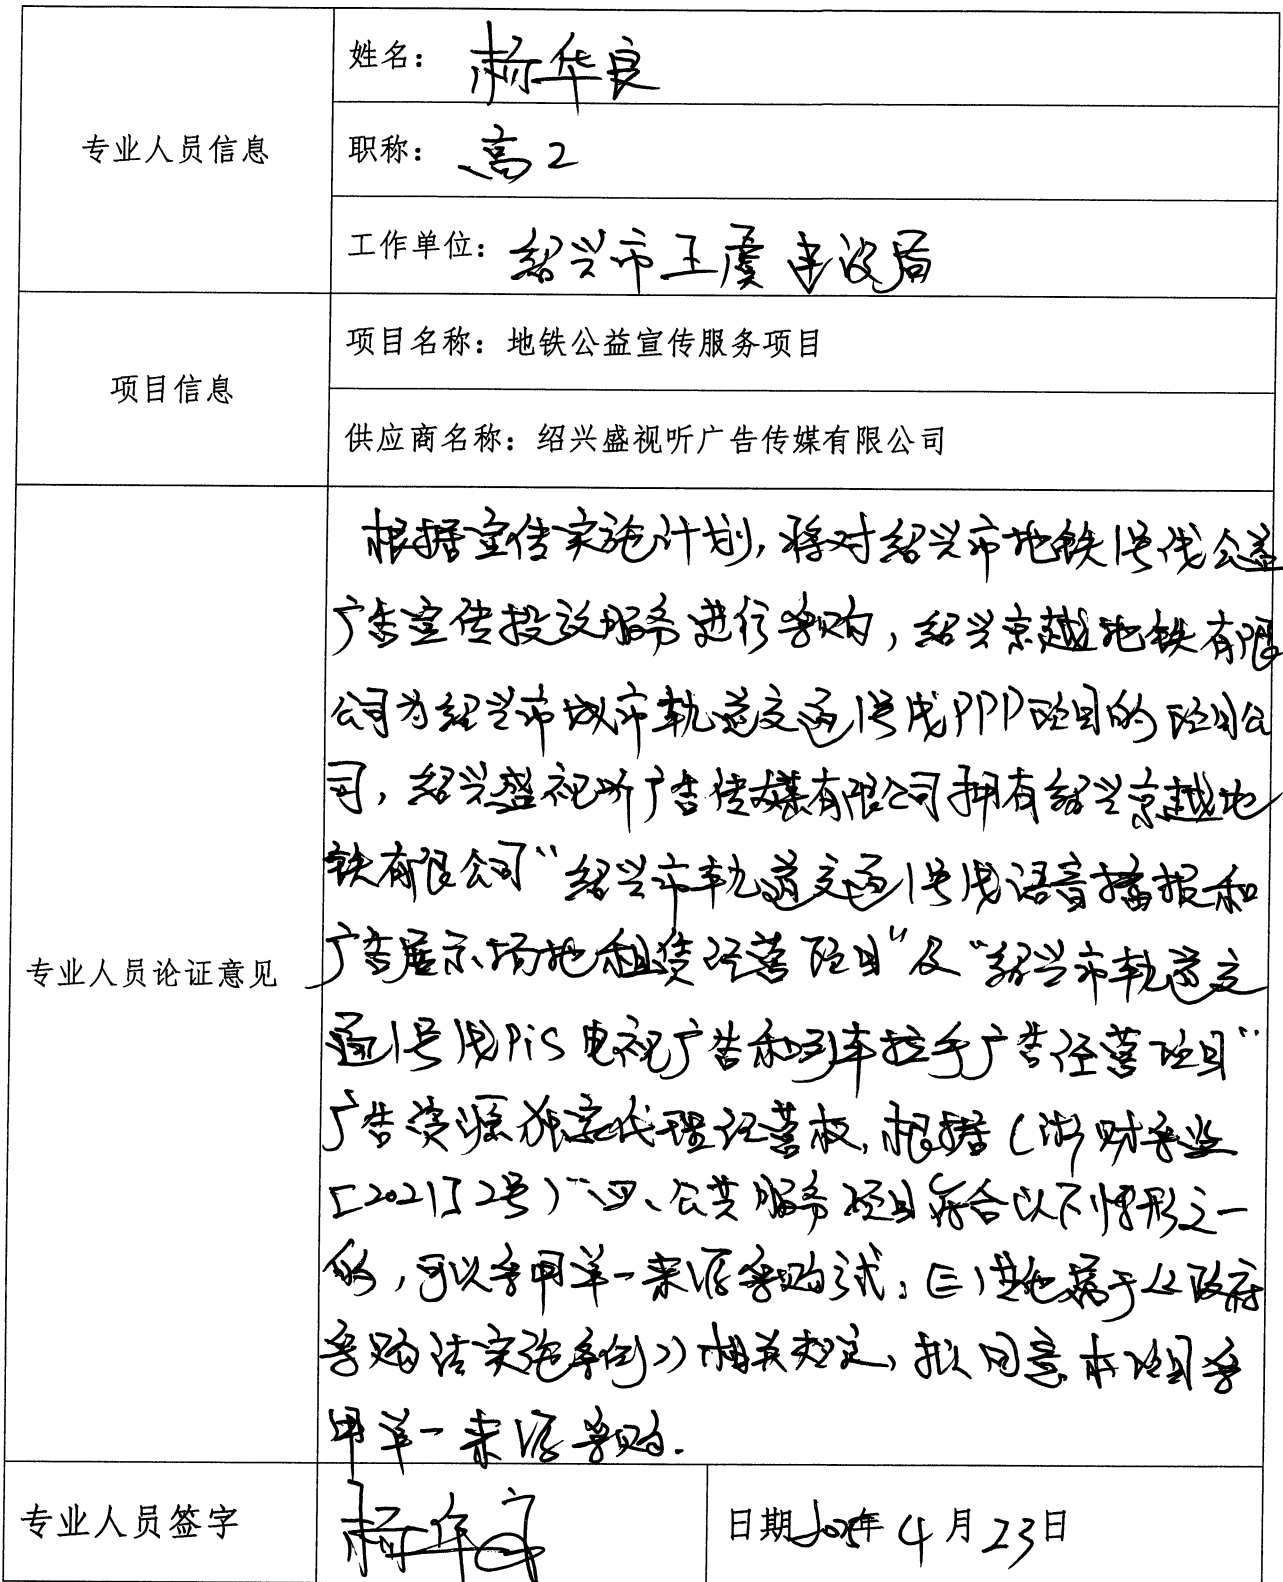 专业人员信息
姓名：杨华良
职称：高工
工作单位：绍兴市上虞建设局
项目信息
项目名称：地铁公益宣传服务项目
供应商名称：绍兴盛视听广告传媒有限公司
专业人员论证意见
根据宣传实施计划，将对绍兴市地铁1号线公益
广告宣传投放服务进行采购，绍兴京越地铁有限
公司为绍兴市城市轨道交通1号线PPP项目的项目公
司，绍兴盛视听广告传媒有限公司拥有绍兴京越地
铁有限公司“绍兴市轨道交通1号线语音播报和
广告展示场地租赁经营项目”及“绍兴市轨道交
通1号线PiS电视广告和列车拉手广告经营项目”
广告资源独家代理经营权，根据（浙财采监
[2021]2号）“四、公共服务项目符合以下情形之一
的，可以采用单一来源采购方式：（三）其他属于《政府
采购法实施条例》》相关规定，拟同意本项目采
用单一来源采购.
专业人员签字
杨华良
日期2025年4月23日